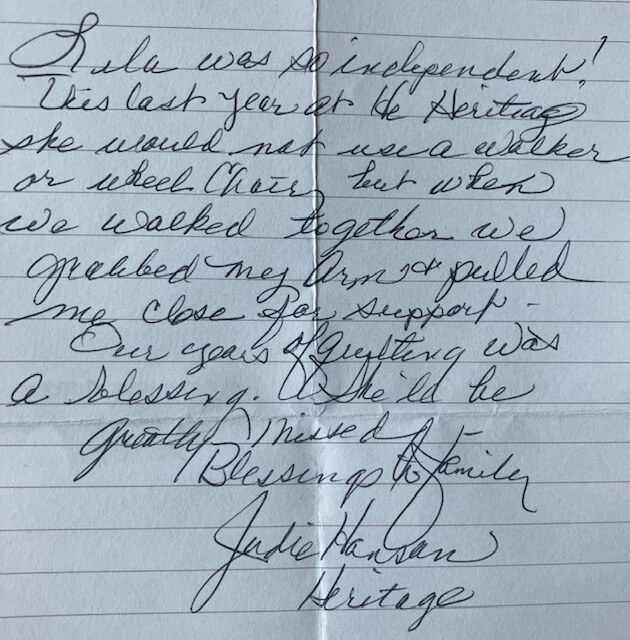 Lila was so independent!
This last year at the Heritage
she would not use a walker
or wheel Chair, but when
we walked together we
grabbed my arm & pulled
me close for support -
Our years of quilting was
a blessing. She'll be
greatly missed
Blessings to family
Judie Hanson
Heritage